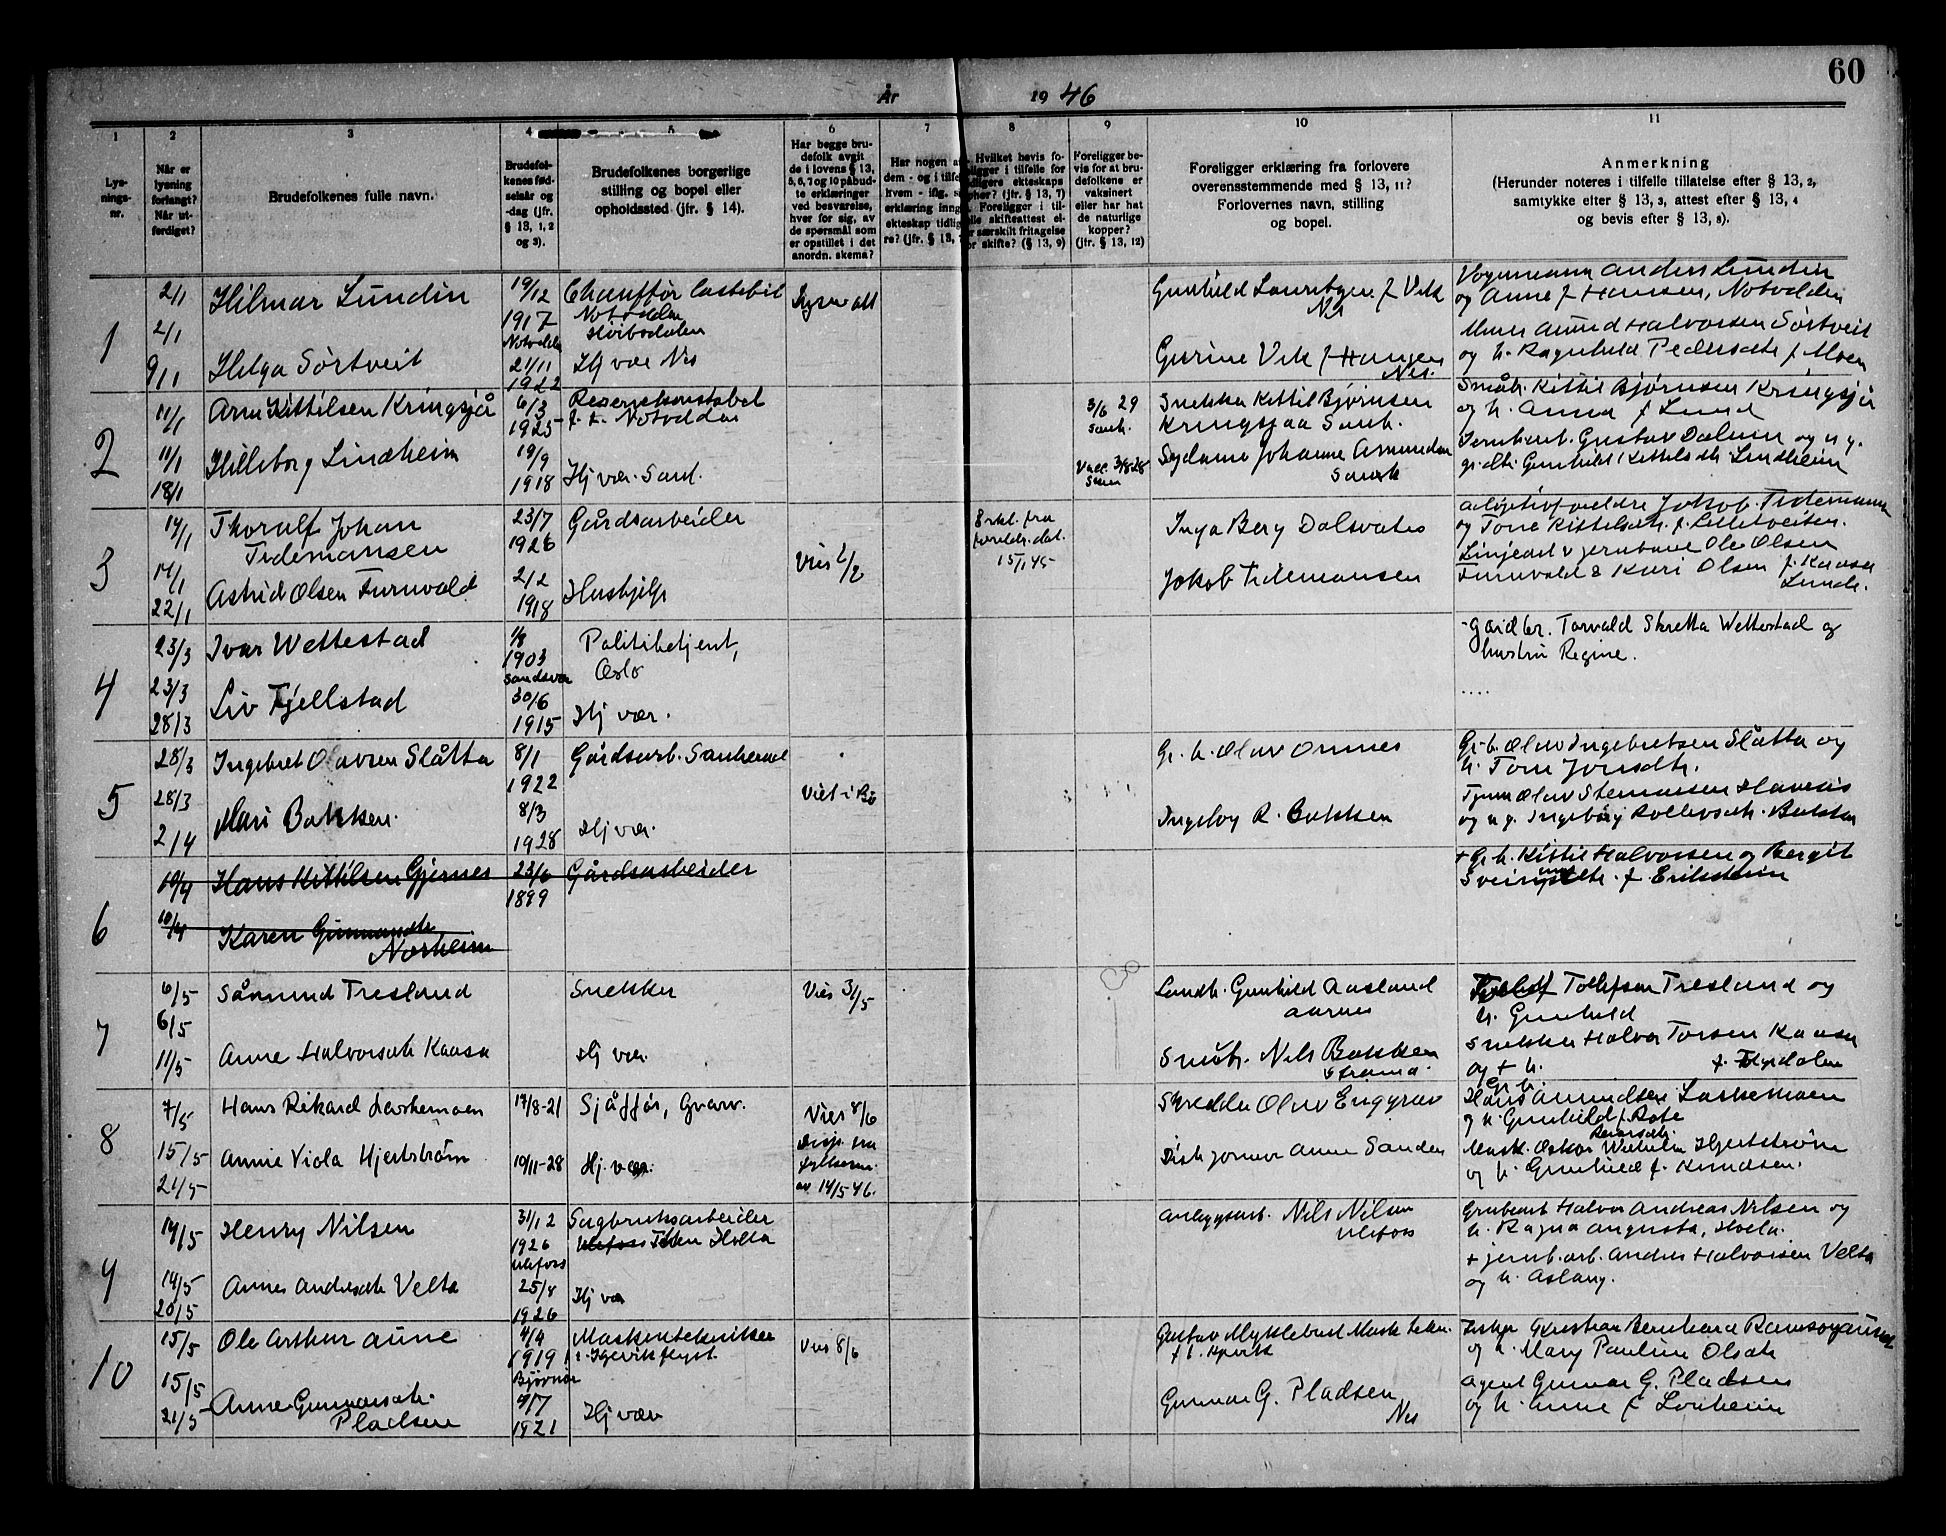 60
År 1946
1
2
3
4
5
6
7
8
9
10
11
Lys-
nings-
nr.
Når er
lysning
forlangt?
Når ut-
ferdiget?
Brudefolkenes fulle navn.
Brudefol-
kenes fød-
selsår og
-dag (jfr.
§ 13, 1, 2
og 3).
Brudefolkenes borgerlige
stilling og bopel eller
opholdssted (jfr. § 14).
Har begge bru-
defolk avgit
de i lovens § 13,
5, 6, 7 og 10 påbud-
te erklæringer
ved besvarelse,
hver for sig, av
de spørsmål som
er opstillet i det
anordn. skema?
Har nogen a
dem - og i tilfel
hvem - iflg. s
erklæring inng
ekteskap tidlig
re? (jfr. § 13,
Hvilket bevis fo-
ligger i tilfelle for
dligere ekteskaps
pher? (jfr. § 13, 7)
Foreligger i til-
lle skifteattest el-
r særskilt fritagelse
or skifte? (§ 13, 9)
Foreligger be-
vis for at bru-
defolkene er
vaksinert
eller har hat
de naturlige
kopper?
(jfr. § 13, 12)
Foreligger erklæring fra forlovere
overensstemmende med § 13, 11?
Forlovernes navn, stilling
og bopel.
Anmerkning
(Herunder noteres i tilfelle tillatelse efter § 13, 2,
samtykke efter § 13, 3, attest efter § 13, 4
og bevis efter § 13, 8).
1
2/1
2/1
9/1
Hilmar Lundin
Helga Sørtveit
19/12
1917
Notodden
21/11
1922
Chauffør lastebil
Notodden
Hj vær Nes
Gunhild f Vik
Nes
Gurine Vik f Haugen
Nes.
Vognmann Anders Lundin
og Anne f Hansen, Notodden
Aanund Halvorsen Sørtveit
og h. Ragnhild Pedersdtr f. Moen
2
11/1
11/1
18/1
Arne Kittilsen Kringsjå
Hilleborg Lindheim
6/3
1925
19/9
1918
Reservekonstabel
f. t. Notodden
Hj vær. Saul.
3/6 29
Sauh.
Vacc. 3/8 28
Snekker Kittil Bjørnsen
Kringsjaa Sauh.
Johanne Amundsen
Sauh
Småbr. Kittil Bjørnsen Kringsjå
og h. Anna f Lund
Jernbarb. Gustav Dalum og u g.
Gunhild Kittilsdtr Lindheim
3
14/1
14/1
22/1
Thoralf Johan
Tidemansen
Astrid Olsen Furuvald
23/7
1926
2/2
1918
Gårdsarbeider
Hushjelp
Vies 2/2
Erkl. fra
foreldr. dat.
15/1 45
Inga Berg Dalsvatn
Jakob Tidemansen
adoptivforeldre Jakob Tidemansen
og Tone Kittelsdtr. f. Lilletveiten.
Linjearb v jernbane Ole Olsen
Furuvald & Kari Olsen f. Kaasa
Lunde.
4
23/3
23/3
28/3
Ivar Wettestad
Liv Fjellstad
1/8
1903
Sandsvær
30/6
1915
Politibetjent,
Oslo
Hj vær.
Gårdbr. Torvald Skretta Wettestad og
hustru Regine.
....
5
28/3
28/3
2/4
Ingebret Olavsen Slåtta
Mari Bakken.
8/1
1922
8/3
1928
Gårdsarb. Sauherad
Hj vær.
Viet i Bø
Gr. b. Olav Omnes
Ingeborg R. Bakken
Gr. b. Olav Ingebretsen Slåtta og
h. Tone Jonsdtr.
Olav Steinarsen
og u g. Ingeborg Rollevsdtr. Bakken
6
10/4
10/4
Hans Kittilsen Gjernes
Karen Gunnarsdtr
Norheim
23/6
1899
Gårdsarbeider
+ Gr. b. Kittil Halvorsen og Bergit
f Erikstein
7
6/5
6/5
11/5
Såmund Tresland
Anne Halvorsdtr Kaasa
Snekker
Hj vær
Vies 31/5
Landh. Gunhild Aasland
Aarnes
Småbr. Nils Bakken
Tollef Tollefsen Tresland og
h. Gunhild
Snekker Halvor Torsen Kaasa
og + h. f. Fyrdalen
8
7/5
15/5
21/5
Hans Rikard Laskemoen
Annie Viola Hjertstrøm
17/8-21
10/11-28
Sjåffør, Gvarv.
Hj. vær.
Vies 8/6
Disp. fra
fylkesm.
av 14/5 46.
Skredder Olav Enggrav
Anne Sanden
Gr. b.
Hans Amundsen Laskemoen
og h. Gunhild f. Rote
Mask. Oskar Wilhelm Hjertstrøm
og h. Gunhild f. Knudsen.
9
14/5
14/5
20/5
Henry Nilsen
Anne Andersdtr Velta
31/12
1926
Ulefoss
25/8
1926
Sagbruksarbeider
Ulefoss Holta
Hj vær
Anleggsarb. Nils Nilsen
Ulefoss
Grubearb Halvor Andreas Nilsen og
h. Ragna Augusta, Holla.
+ jernb. arb. Anders Halvorsen Velta
og h. Aslaug.
10
15/5
15/5
21/5
Ole Arthur Aune
Anne Gunnarsdtr.
Pladsen
4/4
1919
Bjørnør
4/7
1921
Maskintekniker
Hj vær
Vies 8/6
Gustav Myklebust Mask tekn.
Gunnar G. Pladsen
Nes
Kristian Bernhard Ramsøyaune
og h. Mary Pauline Olsdtr
Agent Gunnar G. Pladsen
og h. Anne f Lonheim